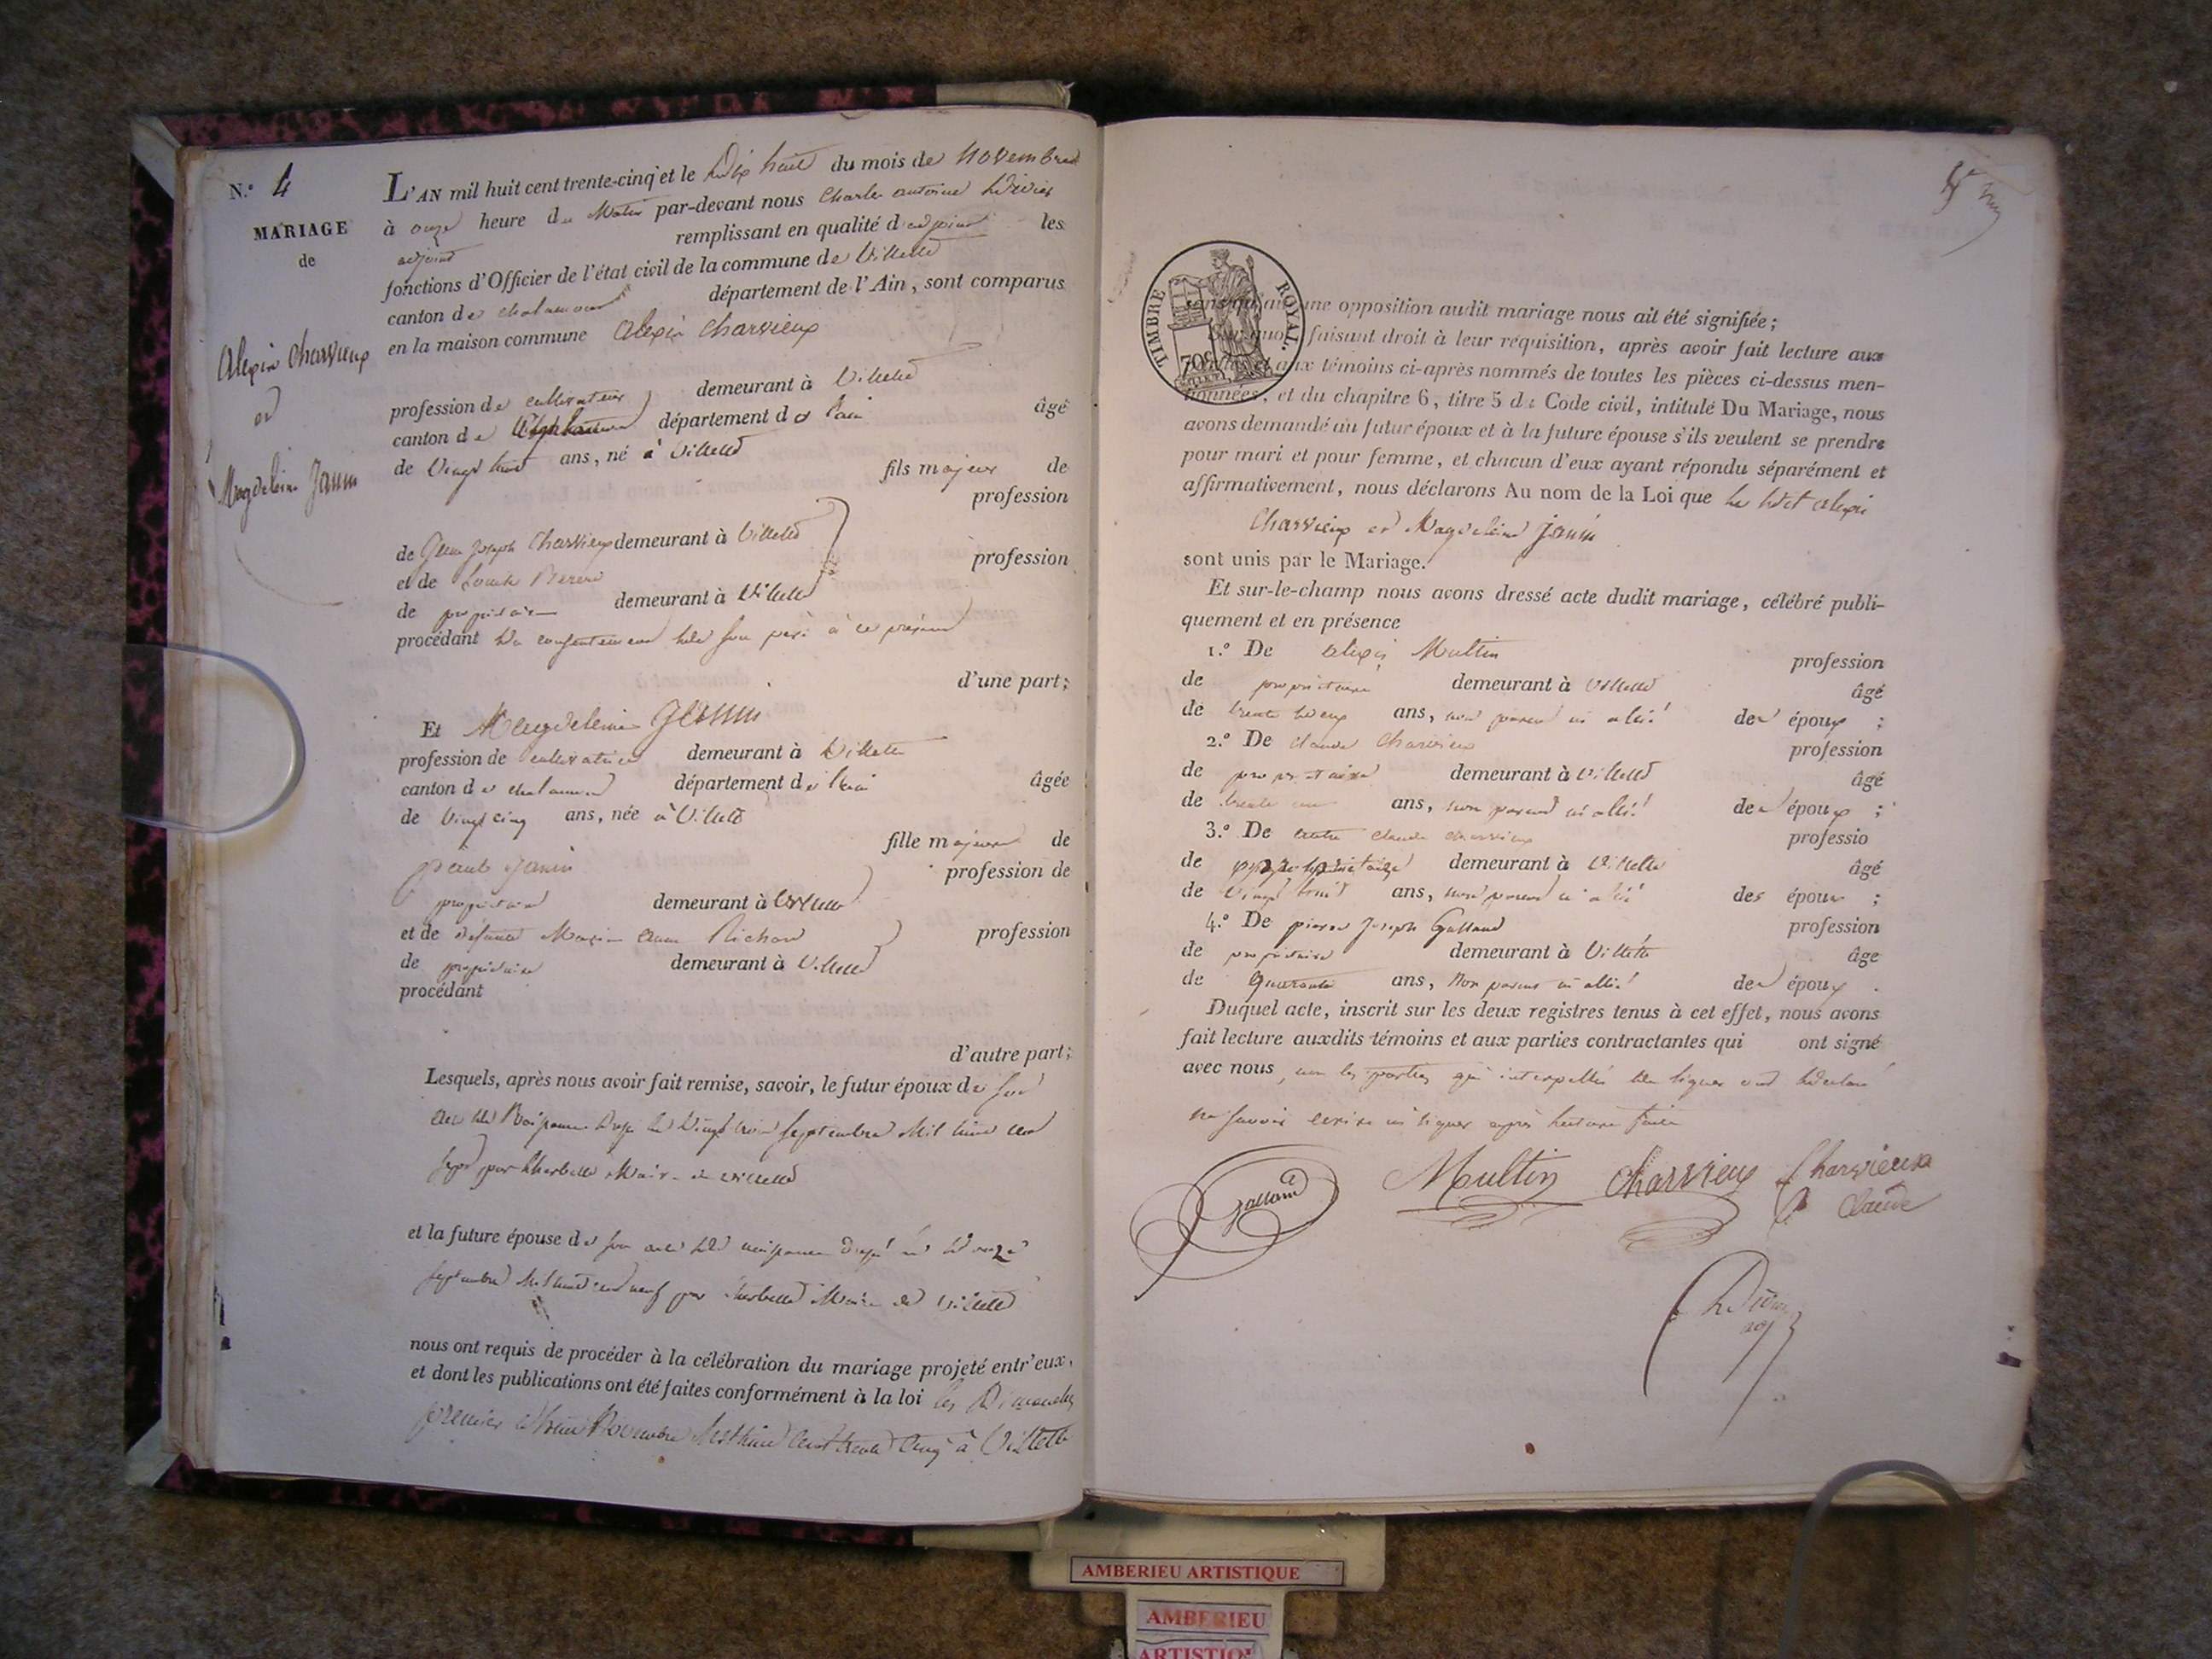 N.° 4
MARIAGE
de
Alexis Charvieux
et
Magdeleine Janin
L'AN mil huit cent trente-cinq et le dix huit du mois de Novembre
à onze heure du Matin par-devant nous Charles antoine
adjoint remplissant en qualité d'adjoint les
fonctions d'Officier de l'état civil de la commune de Villette
canton de chalamont département de l'Ain, sont comparus
en la maison commune Alexis Charvieux
profession de cultivateur demeurant à Villette
canton de département de l'ain âgé
de Vingt huit ans, né à Villette
fils majeur de
profession
de Jean Joseph Charvieux demeurant à Villette
et de Louise profession
de propriétaire demeurant à Villette
procédant du consentement de son père à ce présent
d'une part;
Et Magdeleine Janin
profession de cultivatrice demeurant à Villette
canton de chalamont département de l'ain âgée
de Vingt cinq ans, née à Villette
fille majeure de
paul Janin profession de
propriétaire demeurant à Villette
et de défunte Marie Anne Richon profession
de propriétaire demeurant à Villette
procédant
d'autre part;
Lesquels, après nous avoir fait remise, savoir, le futur époux de son
acte de Naissance du Vingt trois septembre Mil huit cent
sept par Maire de Villette
et la future épouse de son acte de naissance onze
septembre Mil huit cent neuf par Maire de Villette
nous ont requis de procéder à la célébration du mariage projeté entr'eux,
et dont les publications ont été faites conformément à la loi les Dimanches
premier et huit Novembre Mil huit Cent trente Cinq à Villette
TIMBRE ROYAL
70c
une opposition audit mariage nous ait été signifiée;
faisant droit à leur réquisition, après avoir fait lecture aux
aux témoins ci-après nommés de toutes les pièces ci-dessus men-
tionnées, et du chapitre 6, titre 5 du Code civil, intitulé Du Mariage, nous
avons demandé au futur époux et à la future épouse s'ils veulent se prendre
pour mari et pour femme, et chacun d'eux ayant répondu séparément et
affirmativement, nous déclarons Au nom de la Loi que le dit alexis
Charvieux et Magdeleine Janin
sont unis par le Mariage.
Et sur-le-champ nous avons dressé acte dudit mariage, célébré publi-
quement et en présence
1.° De alexis Multin profession
de propriétaire demeurant à Villette âgé
de trente deux ans, non parent ni allié des époux ;
2.° De claude Charvieux profession
de propriétaire demeurant à Villette âgé
de trente ans, non parent ni allié des époux ;
3.° De autre claude charvieux professio
de propriétaire demeurant à Villette âgé
de Vingt huit ans, non parent ni allié des époux ;
4.° De pierre Joseph Galland profession
de propriétaire demeurant à Villette âge
de quarante ans, Non parent ni allié des époux .
Duquel acte, inscrit sur les deux registres tenus à cet effet, nous avons
fait lecture auxdits témoins et aux parties contractantes qui ont signé
avec nous, non les parties qui interpellés de signer ont déclaré
ne savoir écrire ni signer après lecture faite
Galland Multin Charvieux Charvieux
Claude
AMBERIEU ARTISTIQUE
AMBERIEU
ARTISTIQ